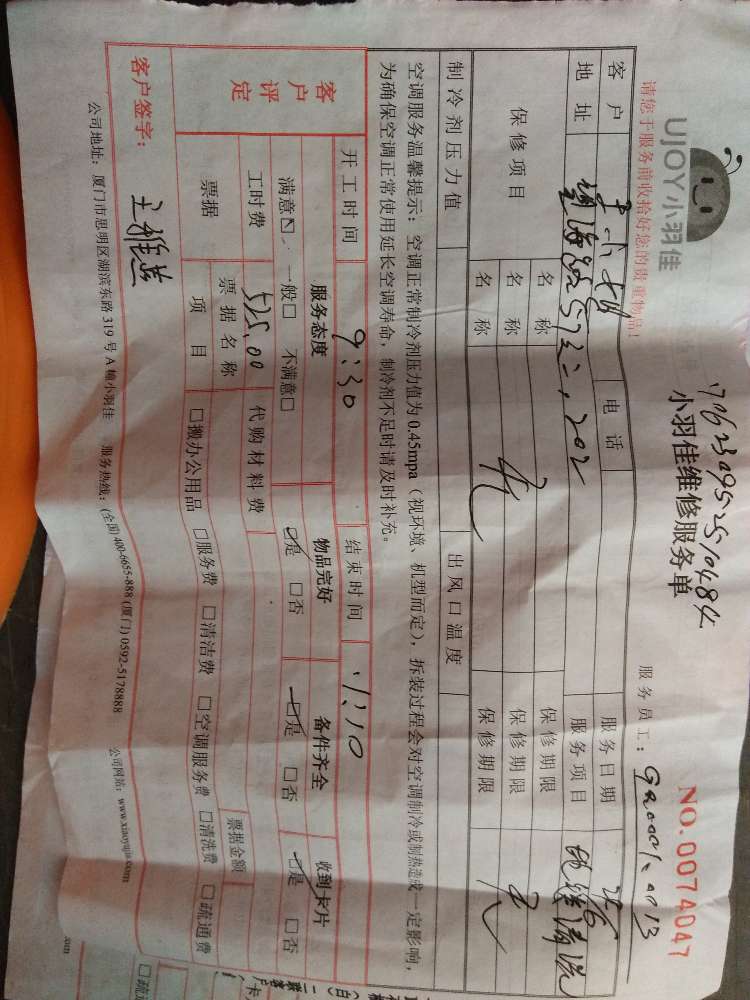 UJOY小羽佳
请您于服务前收拾好您的贵重物品!
176230952510484
小羽佳维修服务单
NO.0074047
服务员工:
客户
电话
服务日期
地址
服务项目 地毯清洗
保修项目
名称
保修期限
名称
保修期限
名称
保修期限
制冷剂压力值
出风口温度
空调服务温馨提示:空调正常制冷剂压力值为0.45mpa(视环境、机型而定),拆装过程会对空调制冷或制热造成一定影响,
为确保空调正常使用延长空调寿命,制冷剂不足时请及时补充。
客户评定
开工时间 9:30 结束时间 11:10
服务态度 物品完好 备件齐全 收到卡片
满意☑ 一般□ 不满意□ ☑是 □否 ☑是 □否 ☑是 □否
工时费 525.00 代购材料费
票据 票据名称 票据金额
项目 □搬办公用品 □服务费 □清洁费 □空调服务费 □清洗费 □疏通费
客户签字:
公司地址:厦门市思明区湖滨东路319号A幢小羽佳 服务热线:(全国)400-6655-888(厦门)0592-5178888 公司网站:www.xiaoyujia.com